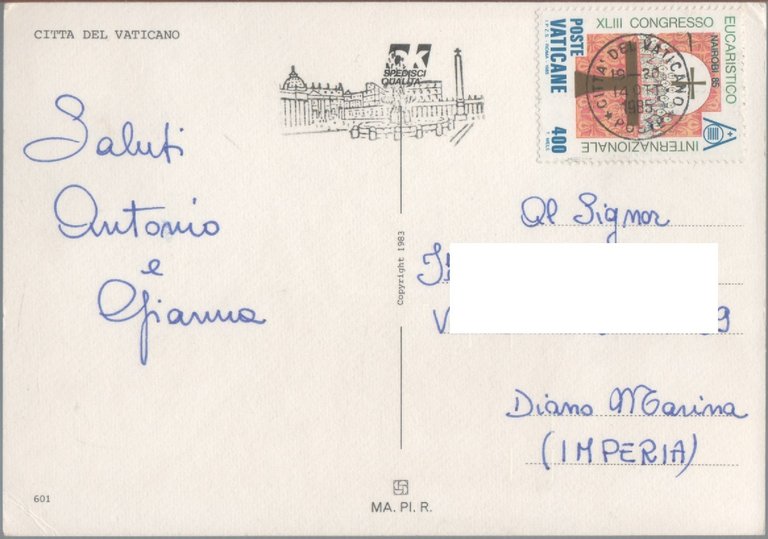 CITTA DEL VATICANO
SPEDISCI
QUALITA
XLIII CONGRESSO
EUCARISTICO
INTERNAZIONALE
NAIROBI 85
POSTE
VATICANE
400
CITTA' DEL VATICANO
19-20
1985
POSTE
Saluti
Antonio
e
Gianna
Copyright 1983
Al Signor
V
9
Diano Marina
(IMPERIA)
601
MA. PI. R.